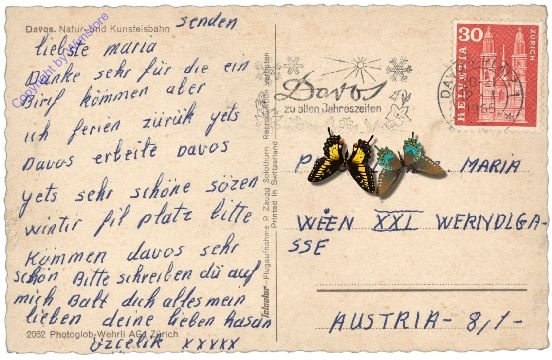 Davos. Natur- und Kunsteisbahn
senden
liebste maria
Danke sehr für die ein
Birf kömmen ater
ich ferien zürük yets
Davos erbeite Davos
yets sehr schöne sözen
winter fil platz bitte
Kommen davos sehr
schön Bitte schreiben dü auf
mich Balt dich alles mein
lieben deine lieben hasan
özcelik xxxxx
2062 Photoglob-Wehrli AG, Zürich
Copyright by
Printed in Switzerland
Flugaufnahme P. Zaugg Solothurn Reproduktion verboten
Davos
zu allen Jahreszeiten
30
HELVETIA
ZÜRICH
DAVOS
P MARIA
WĒEN XXI WERNDLGA-
SSE
AUSTRIA - 8,1-